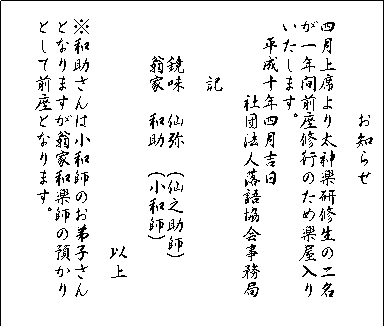 お知らせ
四月上席より太神楽研修生の二名
が一年間前座修行のため楽屋入り
いたします。
平成十年四月吉日
社団法人落語協会事務局
記
鏡味　仙弥　(仙之助師)
翁家　和助　(小和師)
以上
※和助さんは小和師のお弟子さん
となりますが翁家和楽師の預かり
として前座となります。